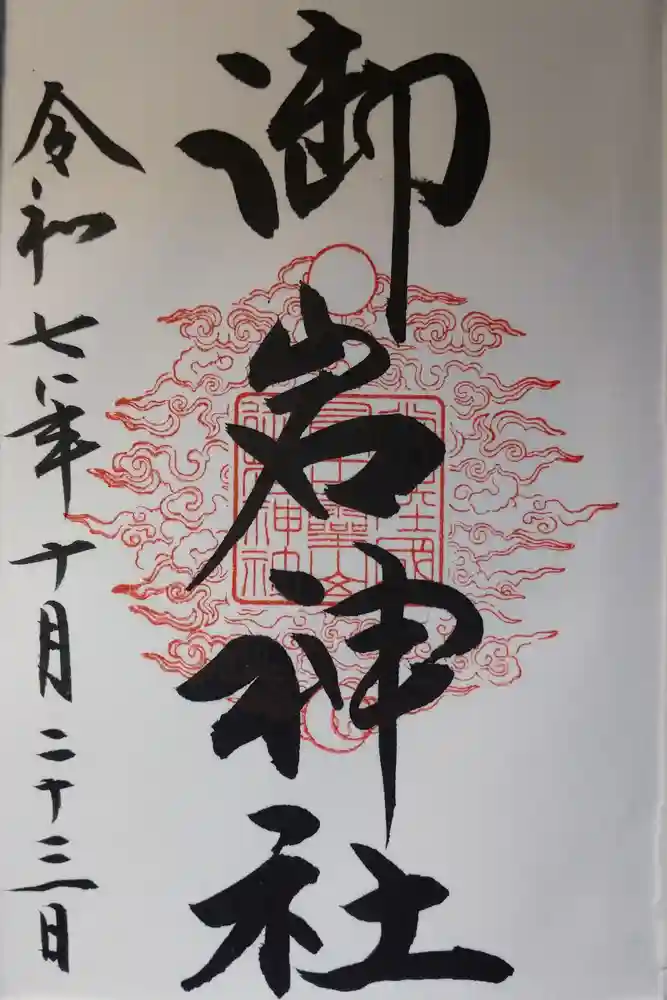 御岩神社
令和七年十月二十三日